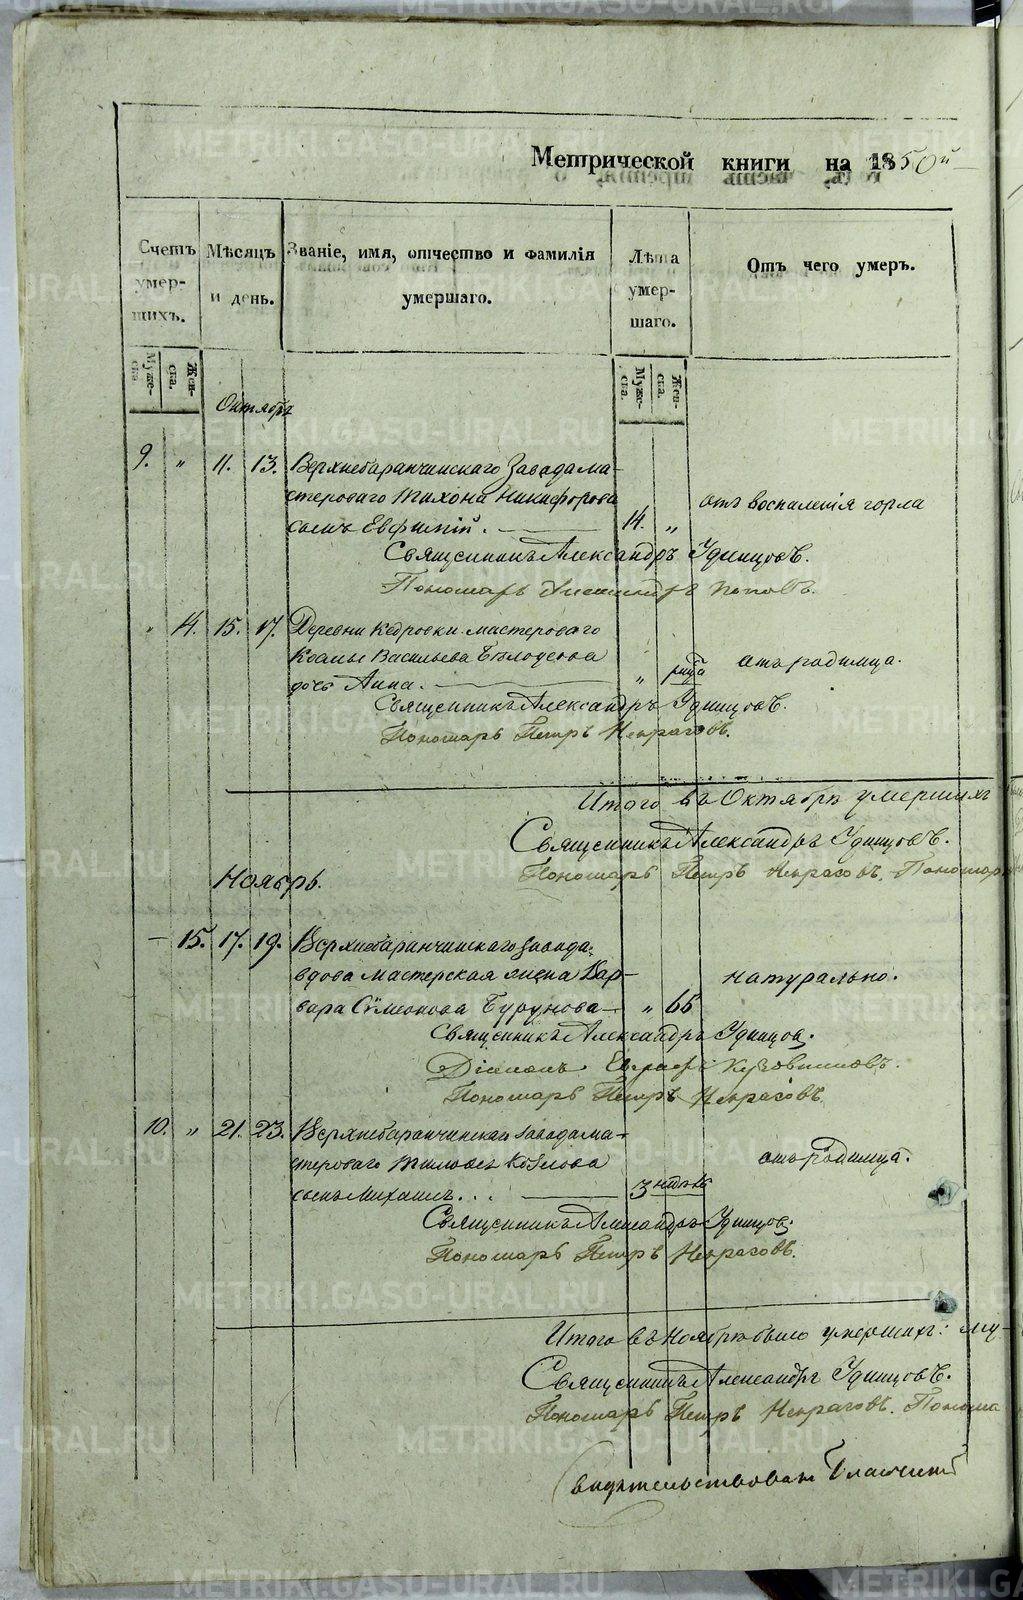 Метрической книги на 1850й
Счетъ умер-шихъ.
Мѣсяцъ и день.
Званіе, имя, отчество и фамилія умершаго.
Лѣта умер-шаго.
Отъ чего умеръ.
Муже-ска.
Жен-ска.
Муже-ска.
Жен-ска.
Октябрь
9. „ 11. 13. Верхнебаранчинскаго Завода ма-
стероваго Тихона Никифорова
сынъ Евфимій. 14. „ отъ воспаленія горла
Священникъ Александръ Удинцовъ.
Пономарь Александръ Поповъ.
„ 14. 15. 17. Деревни Кедровки мастероваго
Козмы Васильева
дочь Анна. „ отъ родимца.
Священникъ Александръ Удинцовъ.
Пономарь Петръ Некрасовъ.
Итого въ Октябрѣ умершихъ
Священникъ Александръ Удинцовъ.
Пономарь Петръ Некрасовъ. Пономарь
Ноябрь.
– 15. 17. 19. Верхнебаранчинскаго завода
вдова мастерская жена Вар-
вара Сѵмеонова Бурунова „ 65 натурально.
Священникъ Александръ Удинцов.
Діаконъ Евграфъ
Пономарь Петръ Некрасовъ.
10. „ 21. 23. Верхнебаранчинскаго завода ма-
стероваго Тимофея Козлова
сынъ Михаилъ... 3 отъ родимца.
Священникъ Александръ Удинцов.
Пономарь Петръ Некрасовъ.
Итого въ Ноябрѣ было умершихъ: му-
Священникъ Александръ Удинцовъ.
Пономарь Петръ Некрасовъ. Понома
Свидѣтельствовалъ Благочинный
METRIKI.GASO-URAL.RU